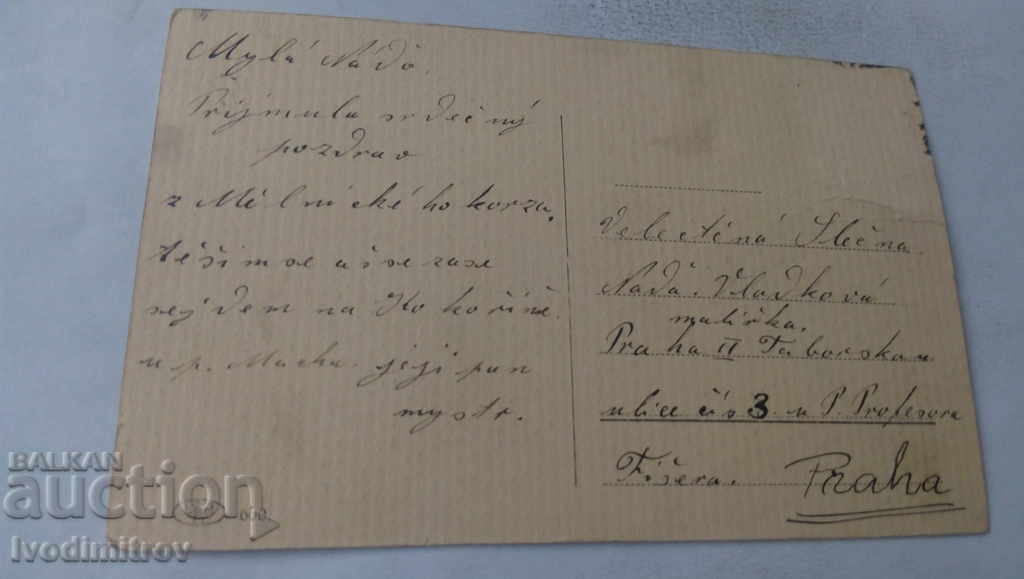 Mylá Náďo.
Přijmula srdečný
pozdrav
z Mělnického korza.
těším se až se zase
sejdem na Kokoříně.
u p. Macha. její pan
mystr.
Velectěná Slečna
Naďa. Vladková
malířka.
Praha II Táborska u
ulice čís 3 u P. Profesora
Fišera. Praha
BALKAN
auction
Ivodimitrov